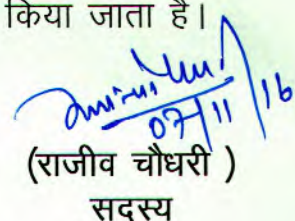 किया जाता है।
07/11/16
(राजीव चौधरी )
सदस्य